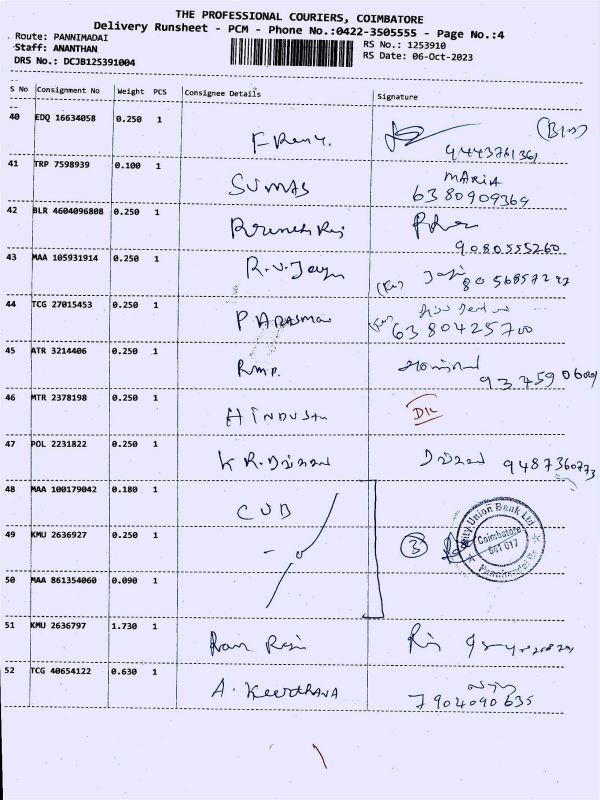 THE PROFESSIONAL COURIERS, COIMBATORE
Delivery Runsheet - PCM - Phone No.:0422-3505555 - Page No.:4
Route: PANNIMADAI
Staff: ANANTHAN
DRS No.: DCJB125391004
RS No.: 1253910
RS Date: 06-Oct-2023
S No Consignment No Weight PCS Consignee Details Signature
40 EDQ 16634058 0.250 1
9443761361
41 TRP 7598939 0.100 1 SUMAS MARIA
6380909369
42 BLR 4604096808 0.250 1
9080555260
43 MAA 105931914 0.250 1 R.V.
44 TCG 27015453 0.250 1
6380425700
45 ATR 3214406 0.250 1 RMP.
46 MTR 2378198 0.250 1 HINDUSTA DIL
47 POL 2231822 0.250 1 K R.
9487360773
48 MAA 100179042 0.180 1 CUB
49 KMU 2636927 0.250 1 3
City Union Bank Ltd
Coimbatore
641 017
50 MAA 861354060 0.090 1
51 KMU 2636797 1.730 1
52 TCG 40654122 0.630 1 A. Keerthana
7904090635